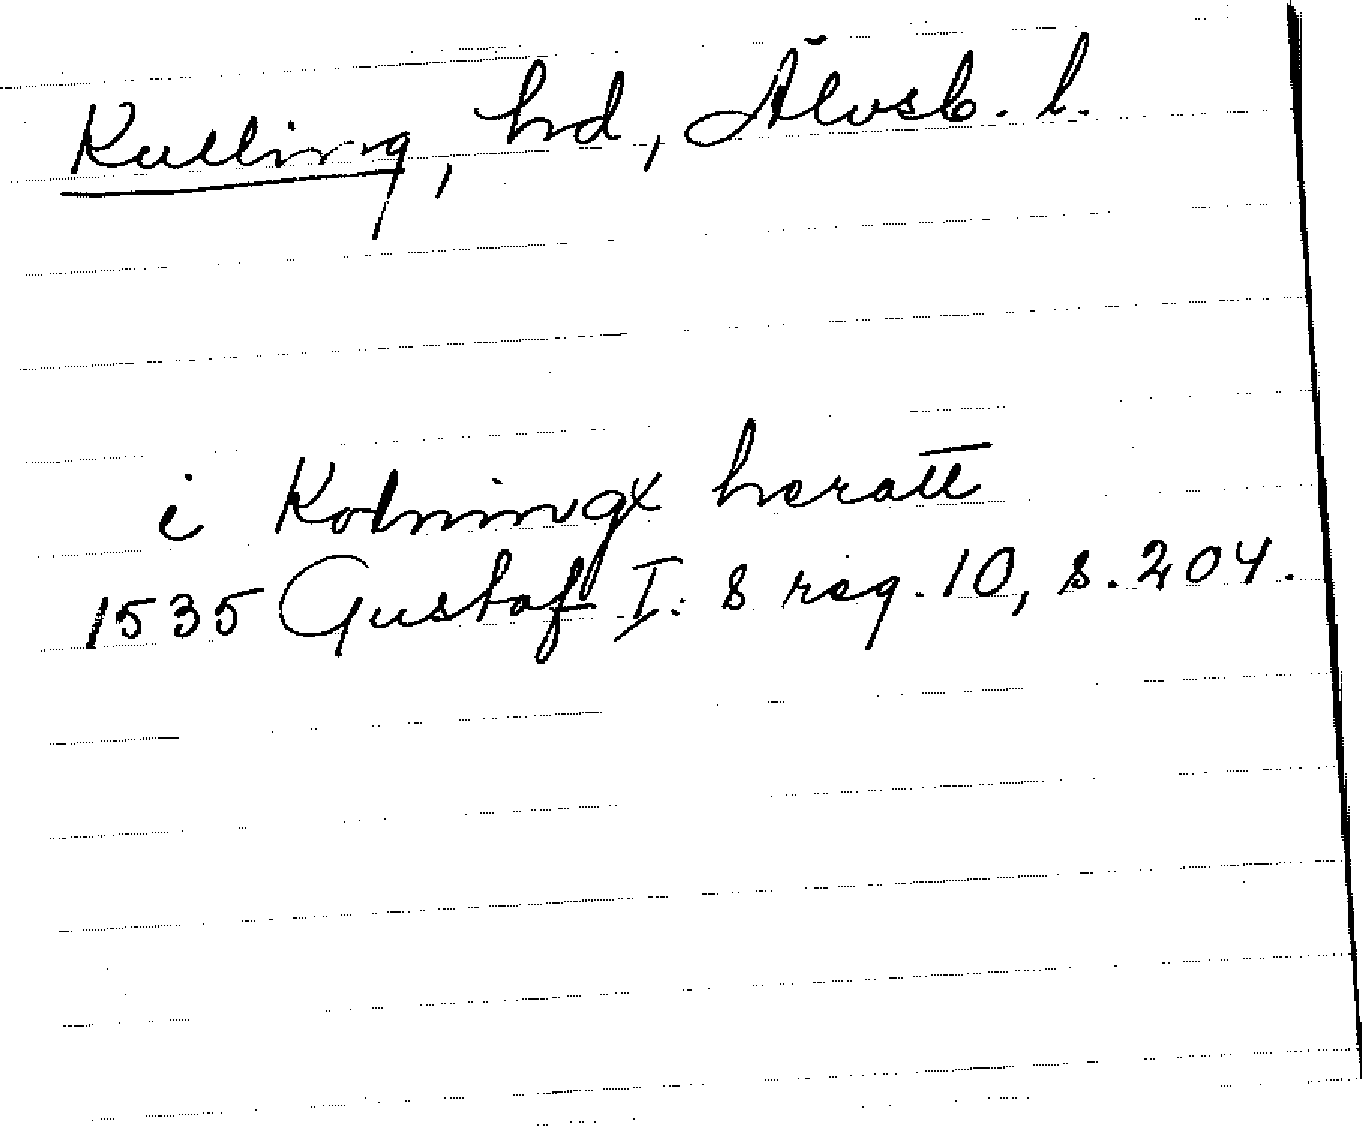 Kulling, hd, Älvsb. l.
i Kolningx heratt
1535 Gustaf I:s reg. 10, s. 204.